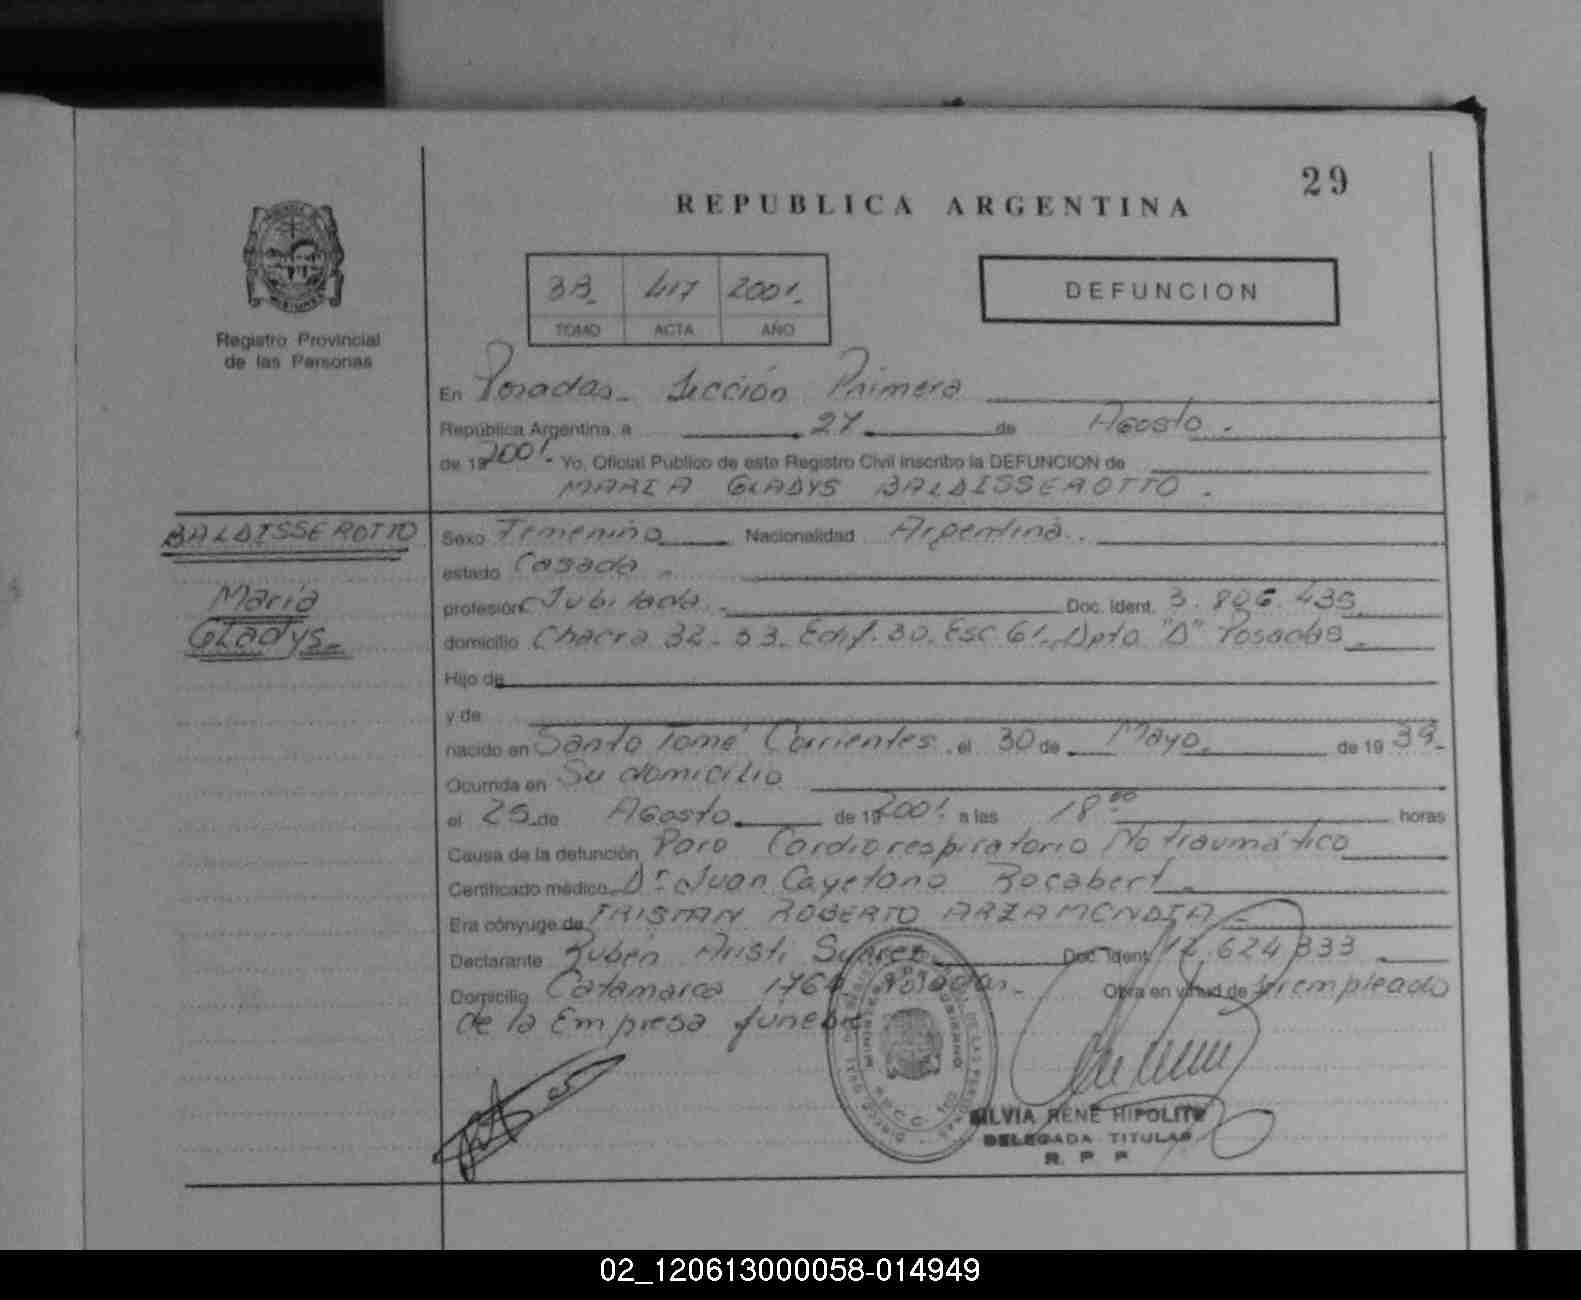 29
REPUBLICA ARGENTINA
3B- 417 2001.
TOMO ACTA AÑO
DEFUNCION
MISIONES
Registro Provincial
de las Personas
En Posadas - Sección Primera
República Argentina, a 27 de Agosto.
de 19 2001.- Yo, Oficial Público de este Registro Civil inscribo la DEFUNCION de
MARIA GLADYS BALDISSEROTTO.
BALDISSEROTTO
María
GLadys.-
Sexo Femenino Nacionalidad Argentina.
estado Casada.
profesión Jubilada. Doc. Ident. 3.806.435
domicilio Chacra 32-33- Edif. 30. Esc 61. Dpto "D" Posadas.-
Hijo de
y de
nacido en Santo Tomé Corrientes. el 30 de Mayo. de 19 39.-
Ocurrida en Su domicilio
el 25 de Agosto de 19 2001. a las 18 00 horas
Causa de la defunción Paro Cardiorespiratorio No traumático
Certificado médico Dr. Juan Cayetano Rocabert.-
Era cónyuge de TRISTAN ROBERTO ARZAMENDIA.-
Declarante Rubén Suarez Doc. Ident. 12.624.333
Domicilio Catamarca 1764 Posadas.- Obra en virtud de ser empleado
de la Empresa funebre
SILVIA RENE HIPOLITO
DELEGADA TITULAR
R. P. P.
02_120613000058-014949